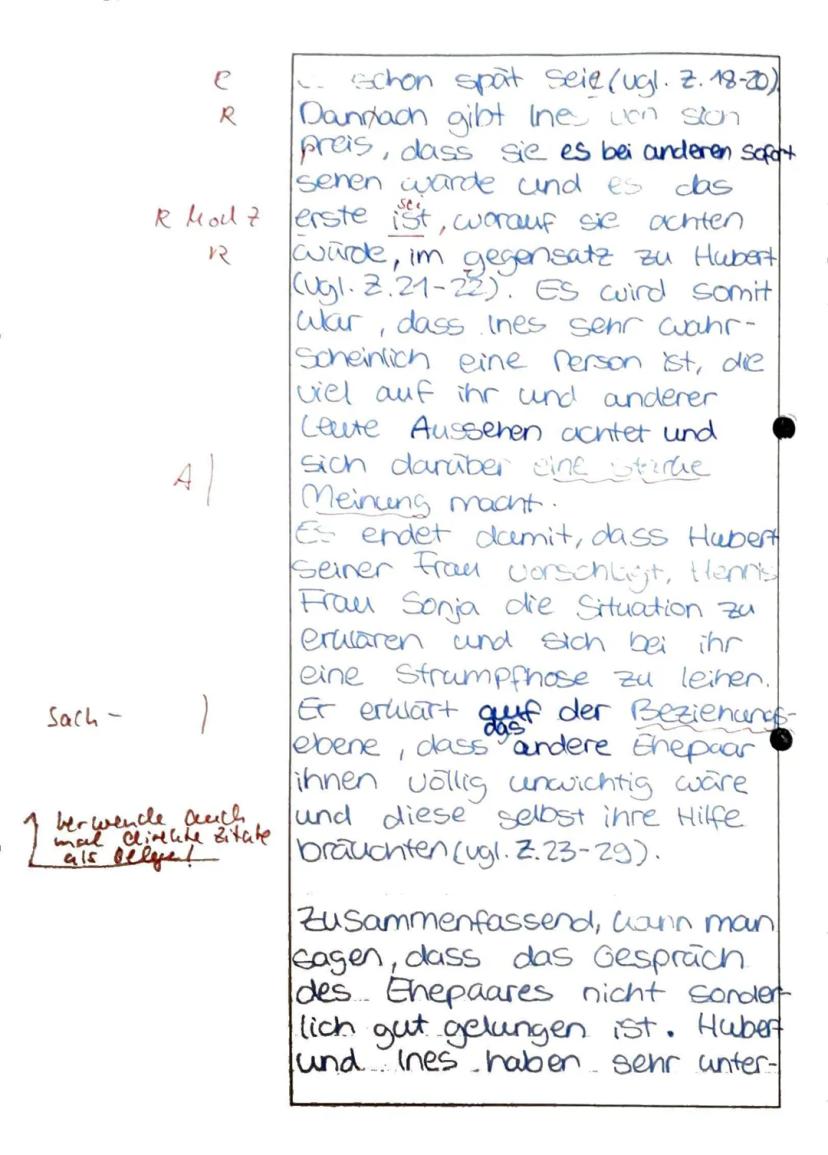 e
... schon spät seie (vgl. Z. 18-20)
R
Dannach gibt Ines von sich
preis, dass sie es bei anderen sofort
sehen würde und es das
R Mod Z
sei
erste ist, worauf sie achten
R
würde, im gegensatz zu Hubert
(vgl. Z. 21-22). Es wird somit
klar, dass Ines sehr wahr-
scheinlich eine Person ist, die
viel auf ihr und anderer
Leute Aussehen achtet und
A
sich darüber eine starke
Meinung macht.
Es endet damit, dass Hubert
seiner Frau vorschlägt, Hennis
Frau Sonja die Situation zu
erklären und sich bei ihr
eine Strumpfhose zu leihen.
Sach-
Er erklärt auf der Beziehungs-
das
ebene, dass andere Ehepaar
ihnen völlig unwichtig wäre
verwende auch
mal direkte Zitate
als Belege!
und diese selbst ihre Hilfe
bräuchten (vgl. Z. 23-29).
Zusammenfassend, kann man
sagen, dass das Gespräch
des Ehepaares nicht sonder-
lich gut gelungen ist. Hubert
und Ines haben sehr unter-